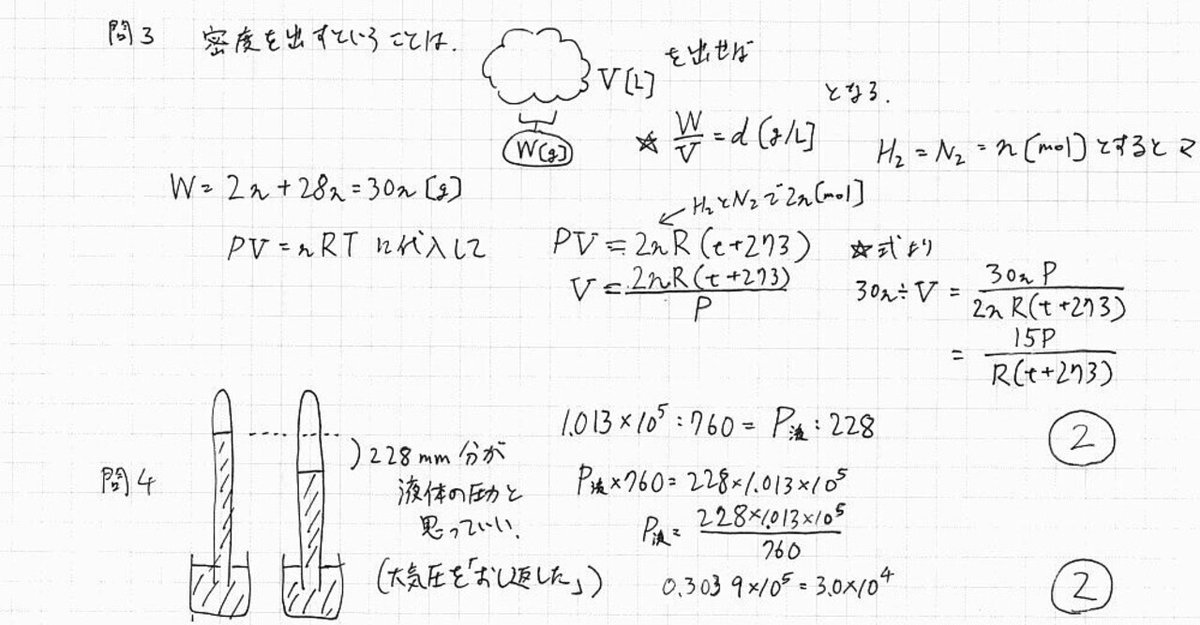 問3 密度を出すということは. V[L] を出せば
W[g]
☆ W/V = d [g/L] となる.
H₂ = N₂ = n [mol] とすると
W = 2n + 28n = 30n [g]
PV = nRT に代入して
H₂とN₂で2n[mol]
PV = 2nR(t+273)
V = 2nR(t+273)/P
☆式より
30n ÷ V = 30nP/2nR(t+273)
= 15P/R(t+273)
②
問4
228mm 分が
液体の圧力と
思っていい.
(大気圧を「おし返した」)
1.013×10⁵ : 760 = P液 : 228
P液×760 = 228×1.013×10⁵
P液 = 228×1.013×10⁵/760
0.3039×10⁵ = 3.0×10⁴
②